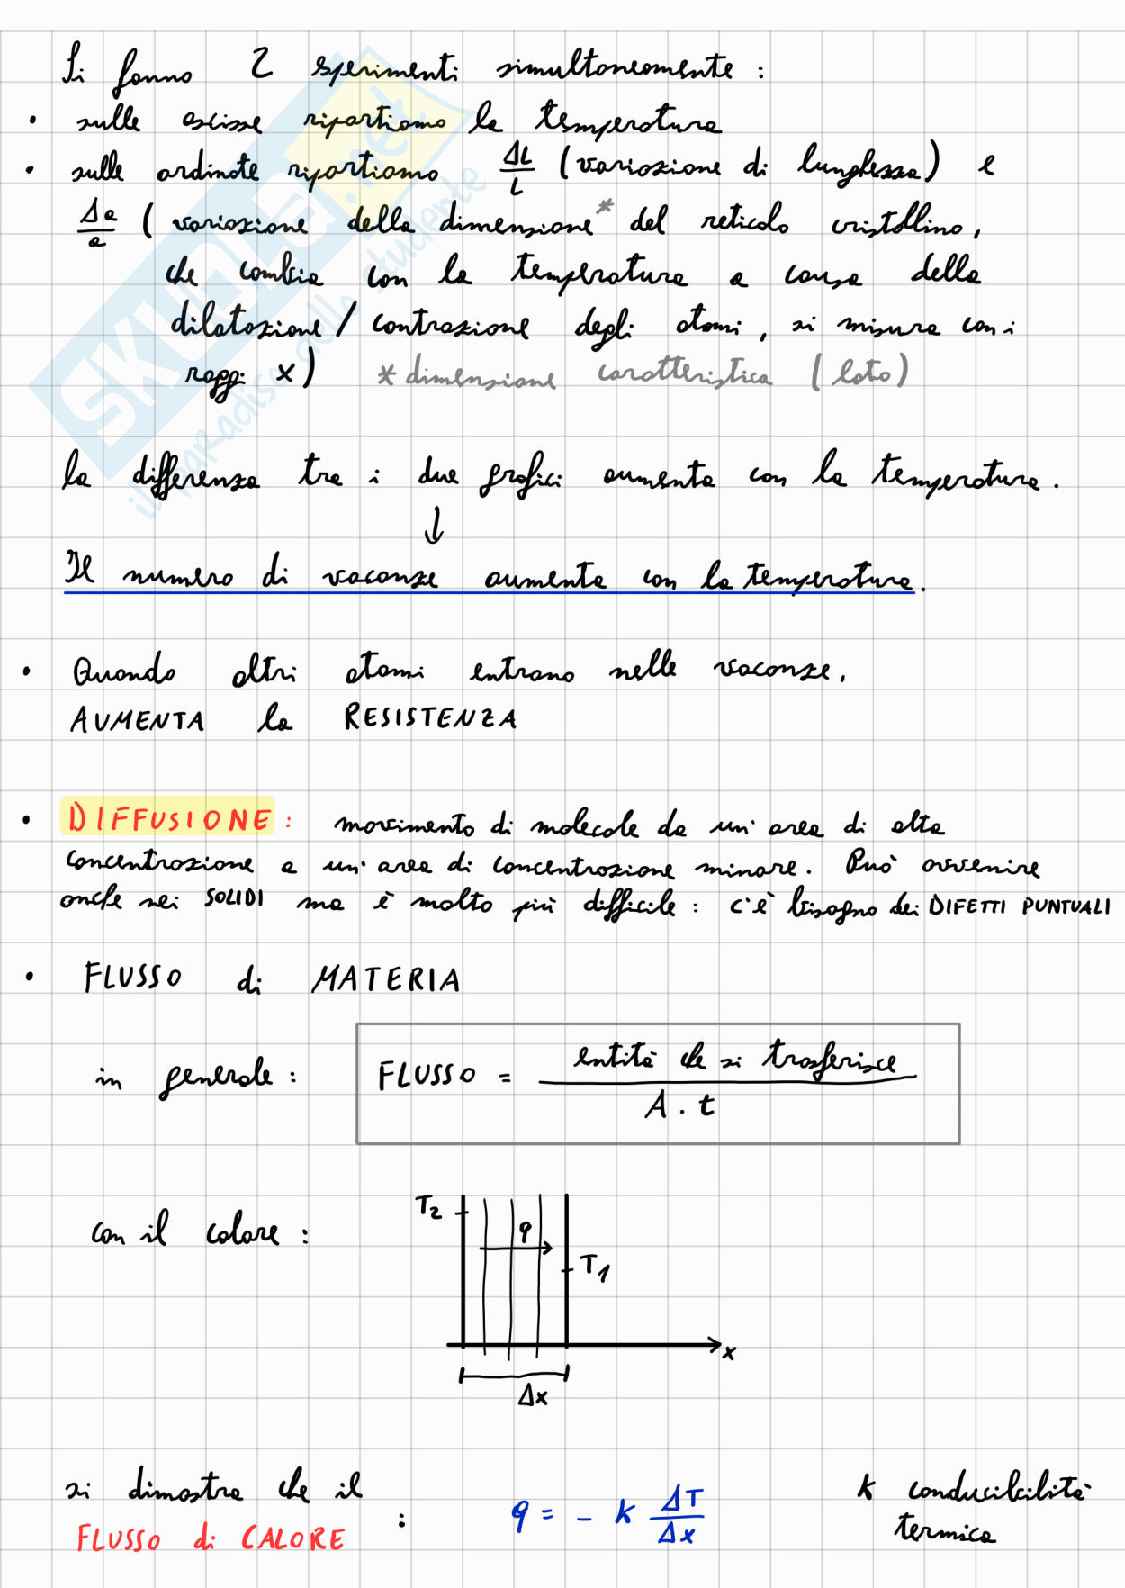 Si fanno 2 sperimenti simultaneamente :
• sulle ascisse riportiamo la temperatura
• sulle ordinate riportiamo ΔL/L (variazione di lunghezza) e
Δa/a ( variazione della dimensione* del reticolo cristallino,
che cambia con la temperatura a causa della
dilatazione / contrazione degli atomi, si misura con i
raggi X) * dimensione caratteristica (lato)
la differenza tra i due grafici aumenta con la temperatura.
↓
Il numero di vacanze aumenta con la temperatura.
• Quando altri atomi entrano nelle vacanze,
AUMENTA la RESISTENZA
• DIFFUSIONE : movimento di molecole da un' area di alta
concentrazione a un' area di concentrazione minore. Può avvenire
anche nei SOLIDI ma è molto più difficile : c'è bisogno dei DIFETTI PUNTUALI
• FLUSSO di MATERIA
in generale : FLUSSO = entità che si trasferisce / A · t
con il calore :
T2
q
T1
x
Δx
si dimostra che il
FLUSSO di CALORE : q = - k ΔT/Δx
k conducibilità
termica
SKUOLA.net
il paradiso dello studente